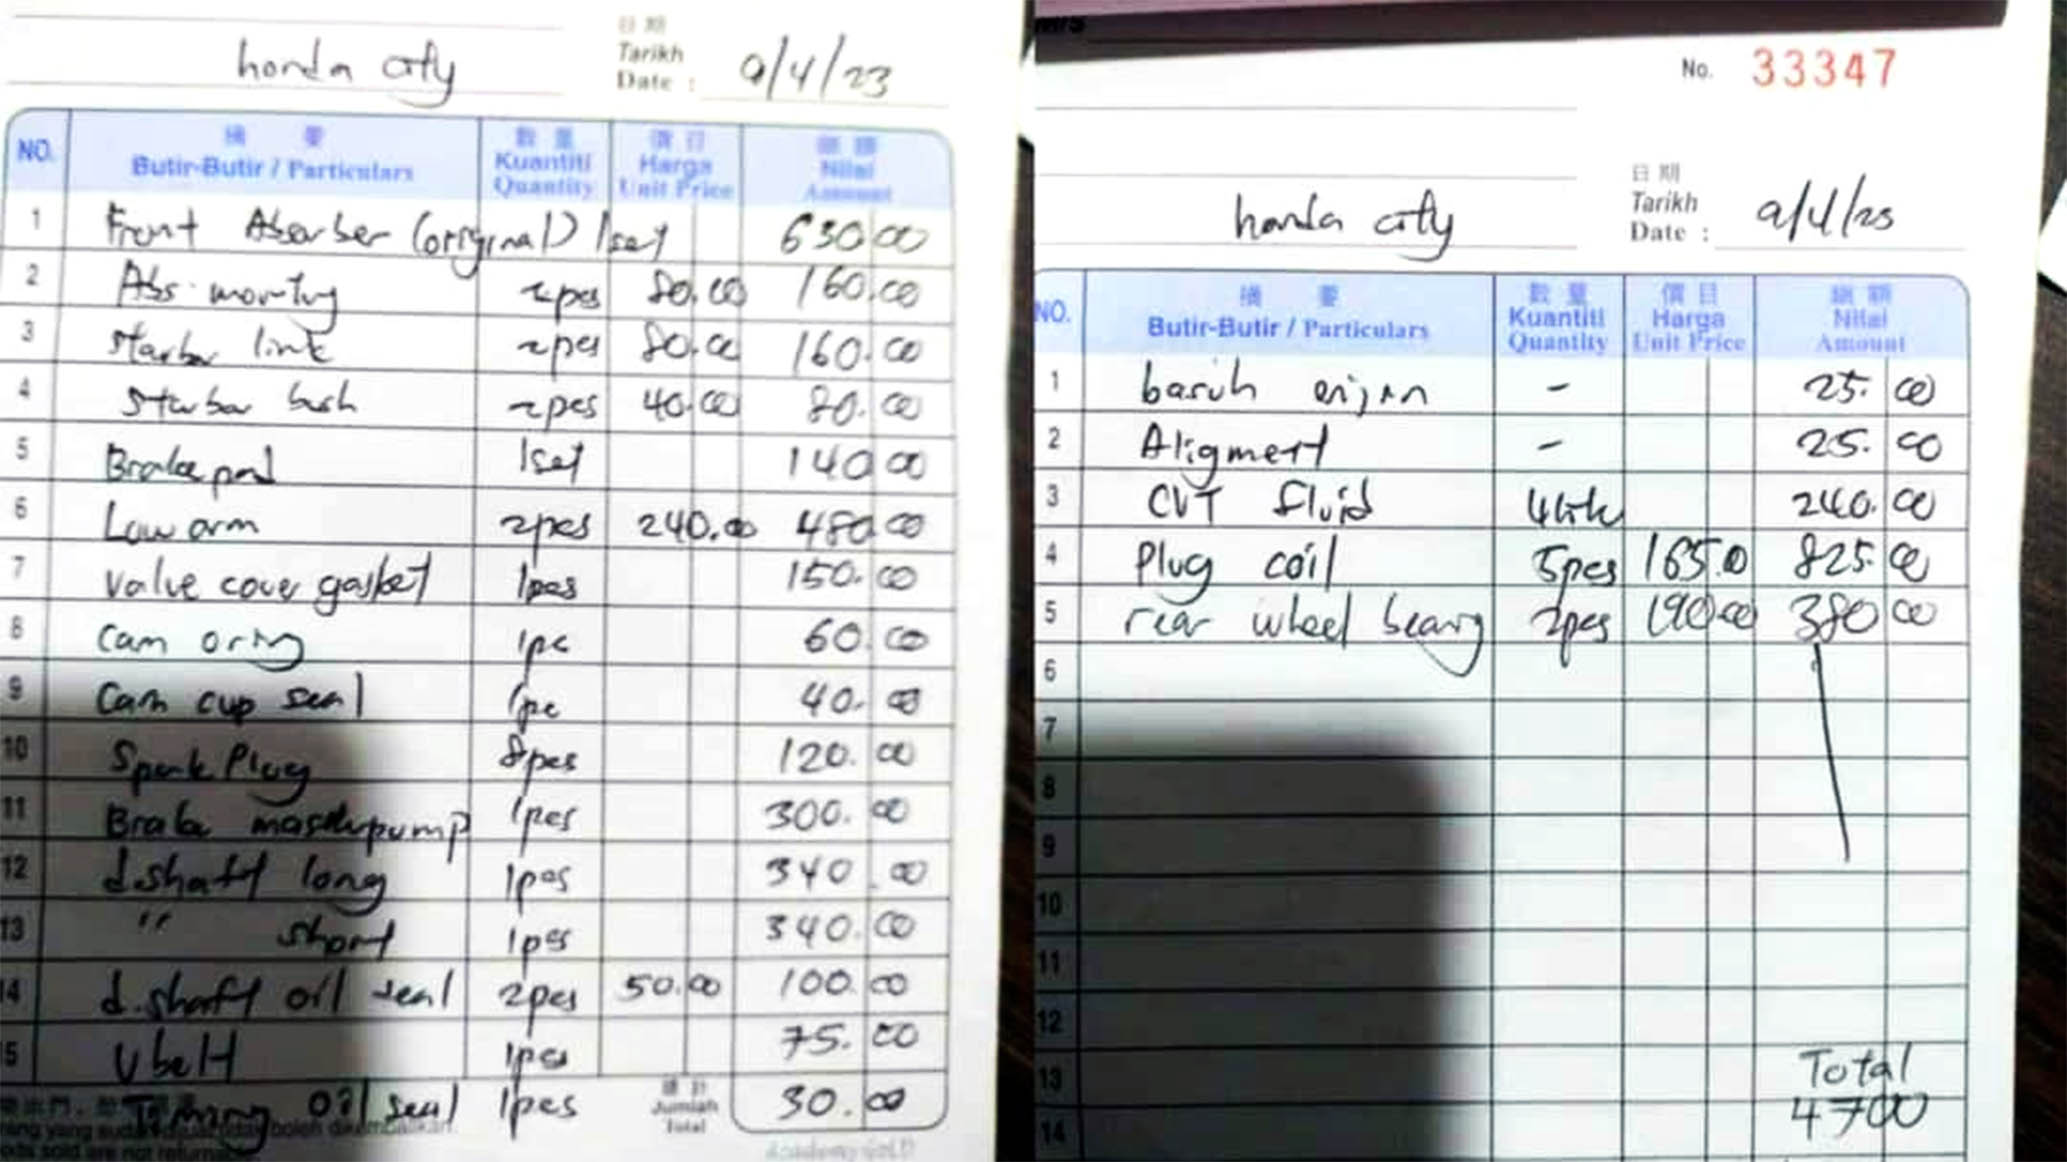 日期
Tarikh
honda city Date : 9/4/23
NO. 摘要 數量 價目 總額
Butir-Butir / Particulars Kuantiti Harga Nilai
Quantity Unit Price Amount
1 Front Absorber (original) 1set 630 00
2 Abs. monting 2pcs 80.00 160.00
3 Starbar link 2pcs 80.00 160.00
4 Starbar bush 2pcs 40.00 80.00
5 Brake pad 1set 140 00
6 Low arm 2pcs 240.00 480.00
7 Valve cover gasket 1pcs 150.00
8 Cam oring 1pc 60.00
9 Cam cup seal 1pc 40.00
10 Spark Plug 8pcs 120.00
11 Brake masterpump 1pcs 300.00
12 d.shaft long 1pcs 340.00
13 " short 1pcs 340.00
14 d.shaft oil seal 2pcs 50.00 100.00
5 V belt 1pcs 75.00
Timing Oil seal 1pcs 總計 30.00
Jumlah
Total
No. 33347
日期
Tarikh
honda city Date : 9/4/23
NO. 摘要 數量 價目 總額
Butir-Butir / Particulars Kuantiti Harga Nilai
Quantity Unit Price Amount
1 basuh enjin - 25.00
2 Aligment - 25.00
3 CVT fluid 4litr 240.00
4 Plug coil 5pcs 165.0 825.00
5 rear wheel bearing 2pcs 190.00 380 00
6
7
8
9
10
11
12
13 Total
14 4700